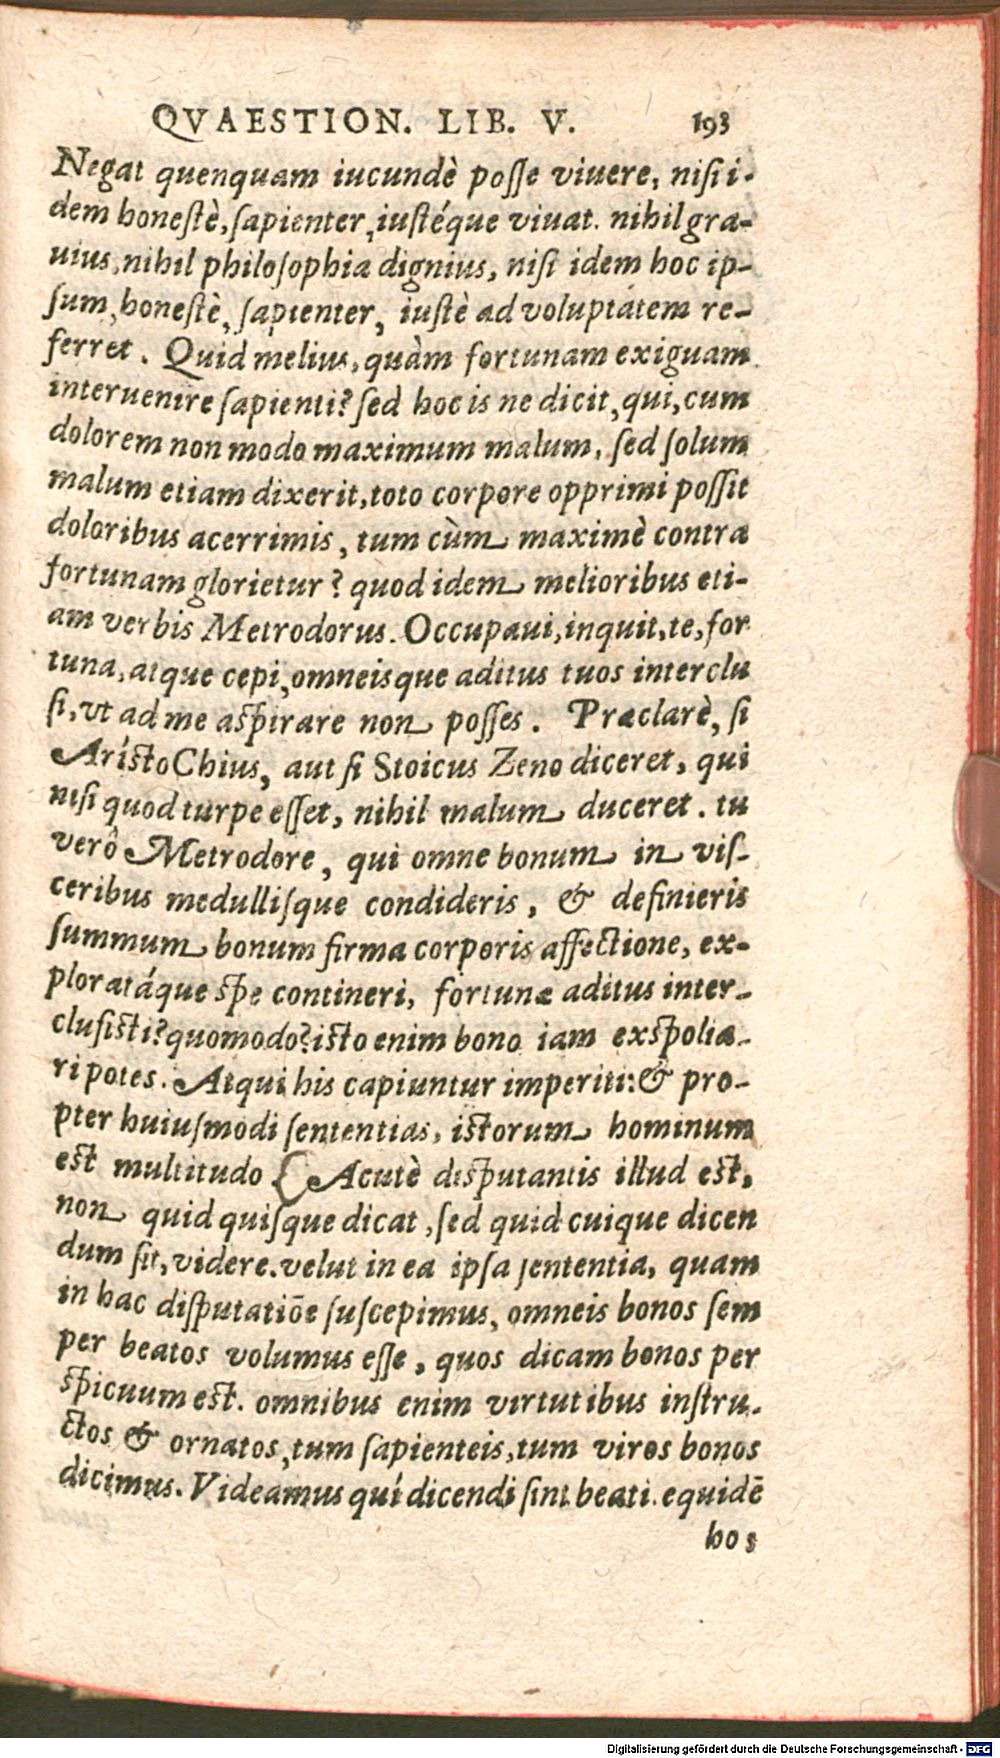 QVAESTION. LIB. V. 193
Negat quenquam iucundè posse viuere, nisi i-
dem honestè, sapienter, iustéque viuat. nihil gra-
uius, nihil philosophia dignius, nisi idem hoc ip-
sum, honestè, sapienter, iustè ad voluptatem re-
ferret. Quid melius, quàm fortunam exiguam
interuenire sapienti? sed hoc is ne dicit, qui, cum
dolorem non modo maximum malum, sed solum
malum etiam dixerit, toto corpore opprimi possit
doloribus acerrimis, tum cùm maximè contra
fortunam glorietur? quod idem melioribus eti-
am verbis Metrodorus. Occupaui, inquit, te, for
tuna, atque cepi, omneisque aditus tuos interclu
si, vt ad me aspirare non posses. Præclarè, si
Aristo Chius, aut si Stoicus Zeno diceret, qui
nisi quod turpe esset, nihil malum duceret. tu
verô Metrodore, qui omne bonum in vis-
ceribus medullisque condideris, & definieris
summum bonum firma corporis affectione, ex-
ploratáque spe contineri, fortunæ aditus inter-
clusisti? quomodo? isto enim bono iam exspolia-
ri potes. Atqui his capiuntur imperiti: & pro-
pter huiusmodi sententias, istorum hominum
est multitudo ( Acutè disputantis illud est,
non quid quisque dicat, sed quid cuique dicen
dum sit, videre. velut in ea ipsa sententia, quam
in hac disputatiōe suscepimus, omneis bonos sem
per beatos volumus esse, quos dicam bonos per
spicuum est. omnibus enim virtutibus instru-
ctos & ornatos, tum sapienteis, tum viros bonos
dicimus. Videamus quí dicendi sint beati. equidē
hos
Digitalisierung gefördert durch die Deutsche Forschungsgemeinschaft - DFG